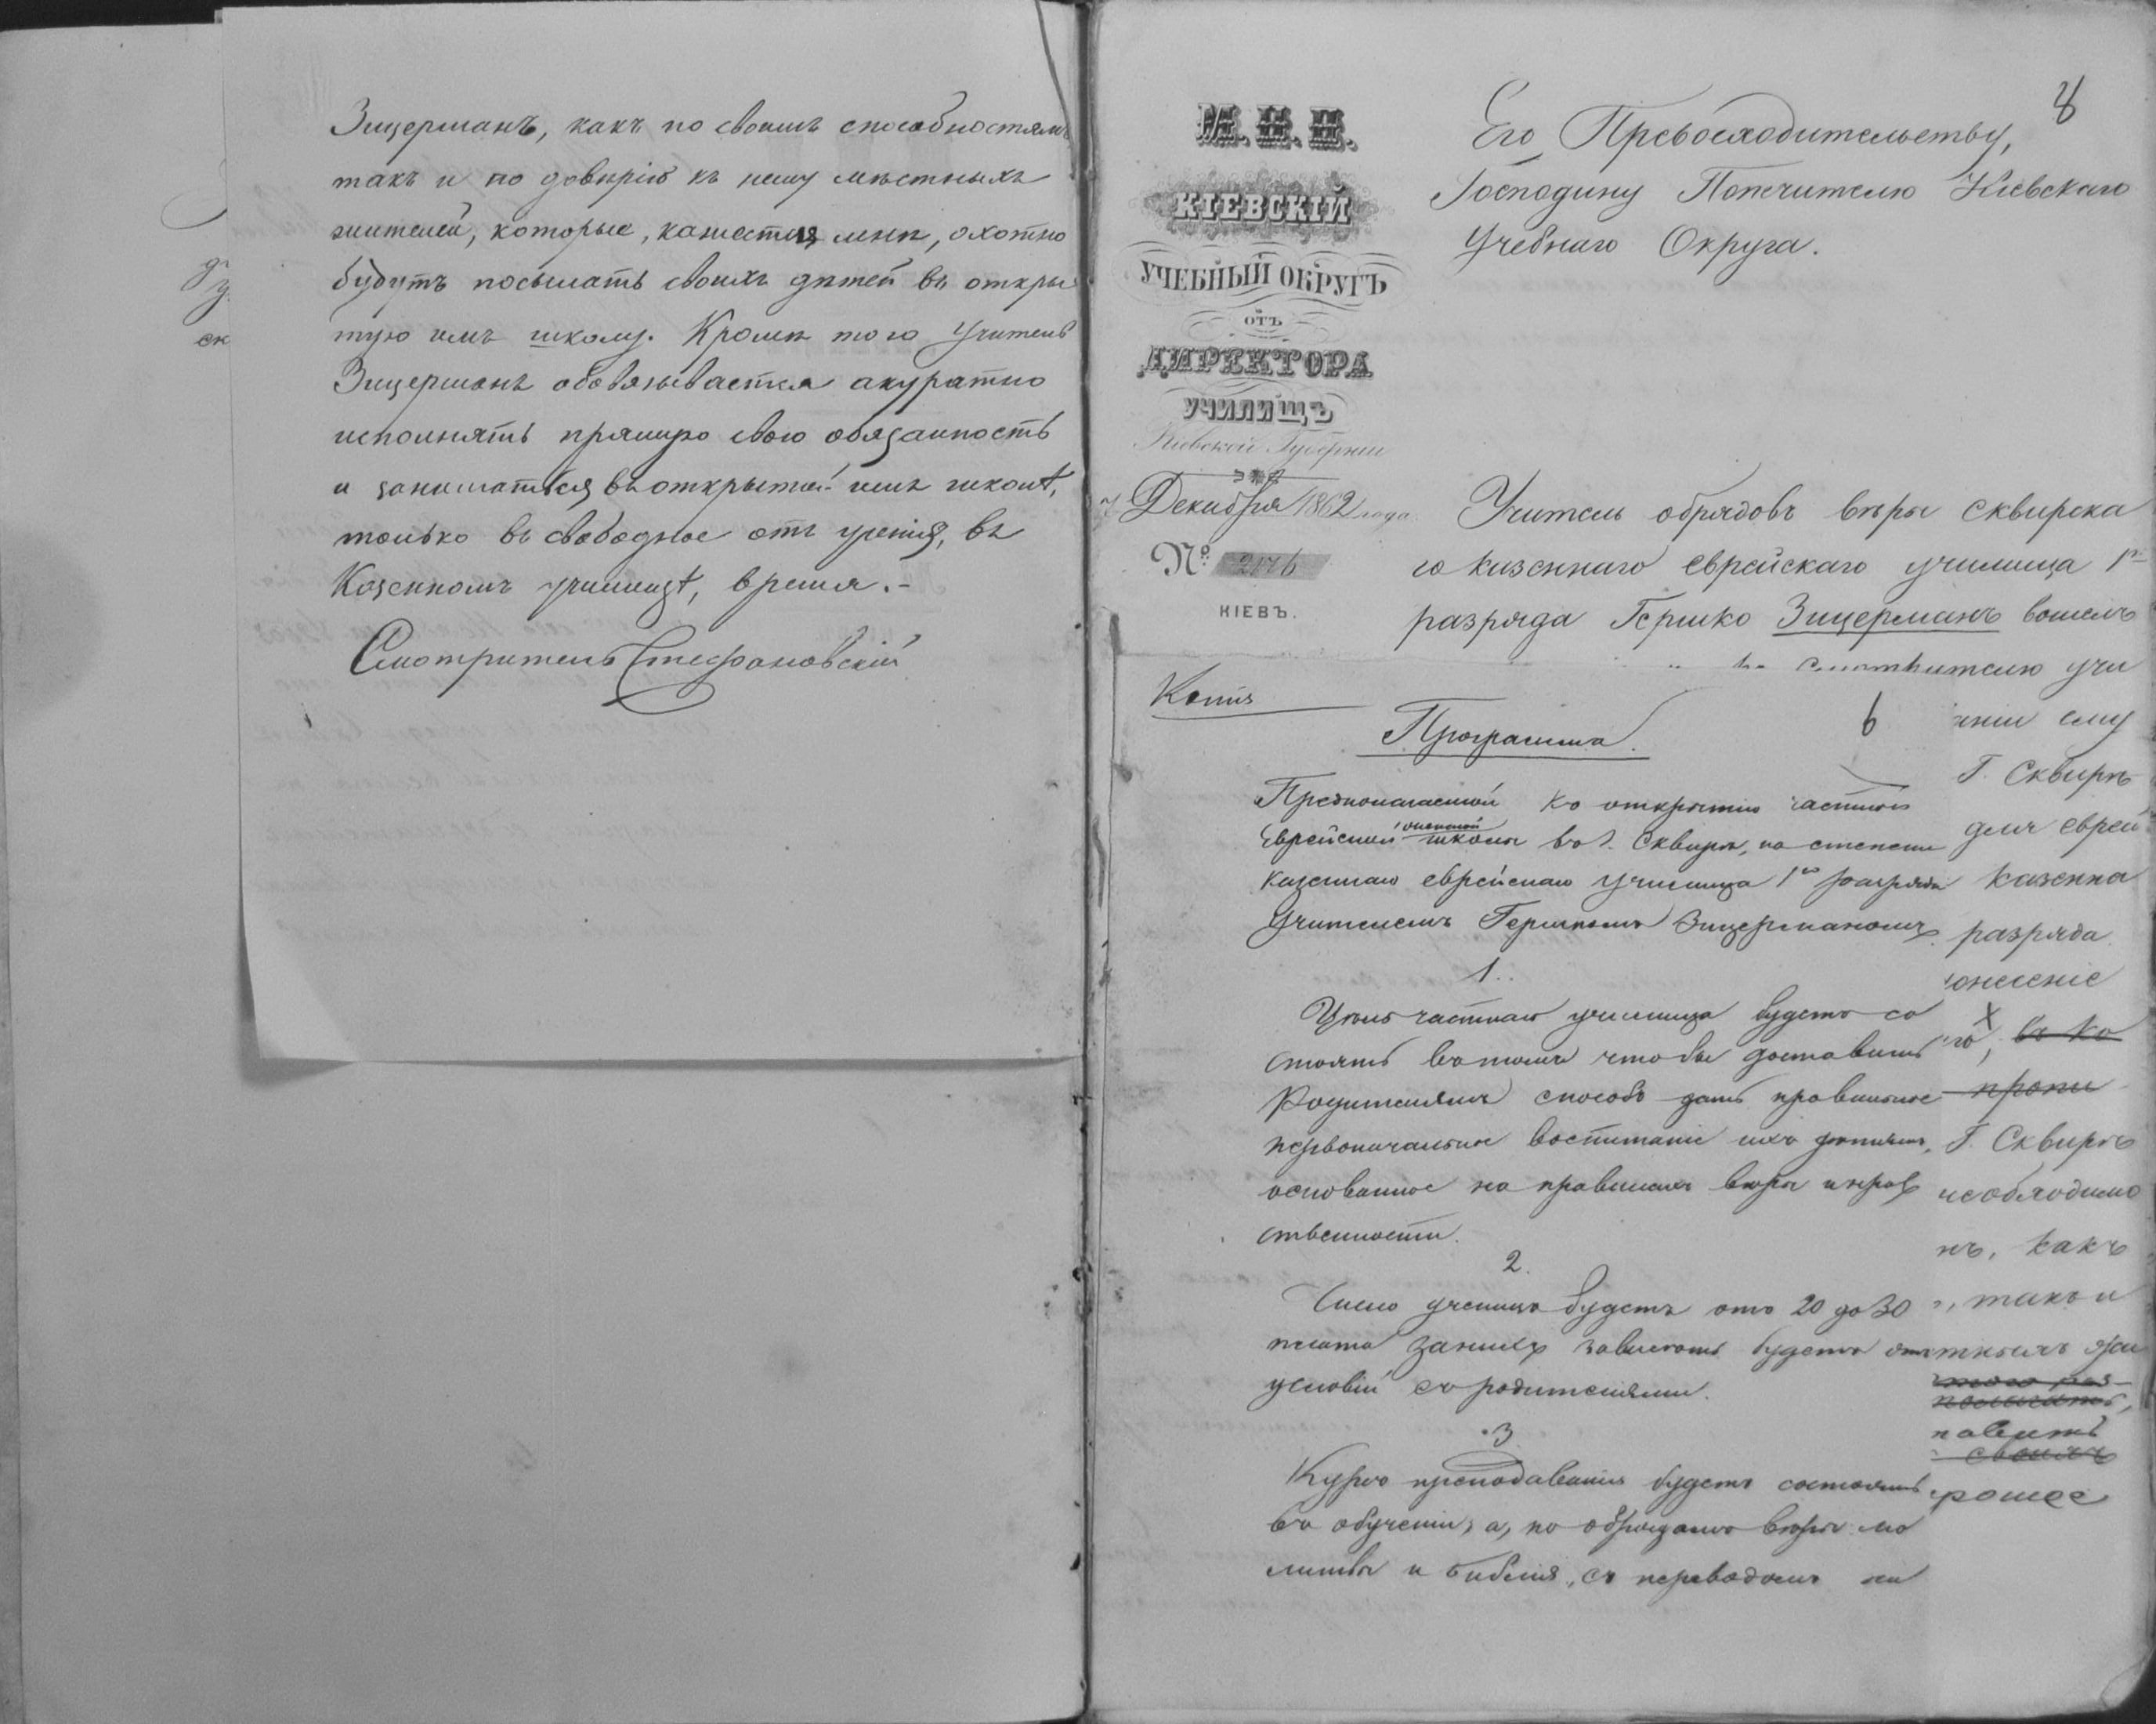 Зицерманъ, какъ по своимъ способностямъ
такъ и по довѣрію къ нему мѣстныхъ
жителей, которые, кажется мнѣ, охотно
будутъ посылать своихъ дѣтей въ откры
тую имъ школу. Кромѣ того Учитель
Зицерманъ обовязывается акуратно
исполнять прямую свою обязанность
и заниматься въ открытой имъ школѣ,
только въ свободное отъ ученія, въ
Казенномъ училищѣ, время.-
Смотритель Стефановскій
8
М. Н. П.
КІЕВСКІЙ
УЧЕБНЫЙ ОКРУГЪ
отъ
ДИРЕКТОРА
УЧИЛИЩЪ
Кіевской Губерніи
Декабря 1862 года
№ 2176
КІЕВЪ.
Его Превосходительству,
Господину Попечителю Кіевскаго
Учебнаго Округа.
Учитель обрядовъ вѣры Сквирска
го казеннаго еврейскаго училища 1го
разряда Гершко Зицерманъ вошелъ
смотрителю учи
ему
Г. Сквирѣ
для еврей
казенна
разряда
онесеніе
го, въ ко
Г. Сквирѣ
необходимо
нъ, какъ
такъ и
своихъ
Копія
6
Программа.
Предполагаемой къ открытію частной
Еврейской женской школы въ г. Сквирѣ, на степени
казеннаго еврейскаго училища 1го разряда
Учителемъ Гершкомъ Зицерманомъ.
1.
Цѣль частнаго училища будетъ со
стоять въ томъ чтобы доставить
Родителямъ способъ дать правильное
первоначальное воспитаніе ихъ дѣтямъ,
основанное на правилахъ вѣры и нрав
ственности.
2.
Число ученицъ будетъ отъ 20 до 30
плата за нихъ зависѣть будетъ отъ
условій съ родителями.
3
Курсъ преподаванія будетъ состоять
въ обученіи, а, по обрядамъ вѣры мо
литвы и библія, съ переводомъ на